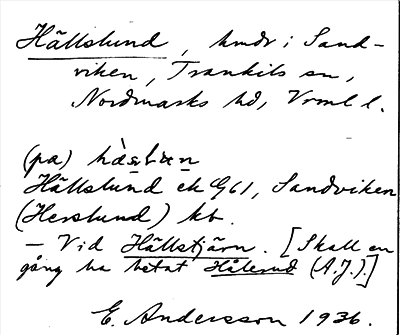 Hällslund, hmdr i Sand-
viken, Trankils sn,
Nordmarks hd, Vrml l.
(pa)
Hällslund ek G61, Sandviken
(Herslund) kb.
– Vid Hällstjärn. [Skall en
gång ha hetat Hålerud (A.J.).]
E. Andersson 1936.